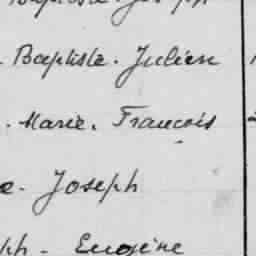 . Baptiste. Julien
. Marie. François
e. Joseph
ph - Eugène